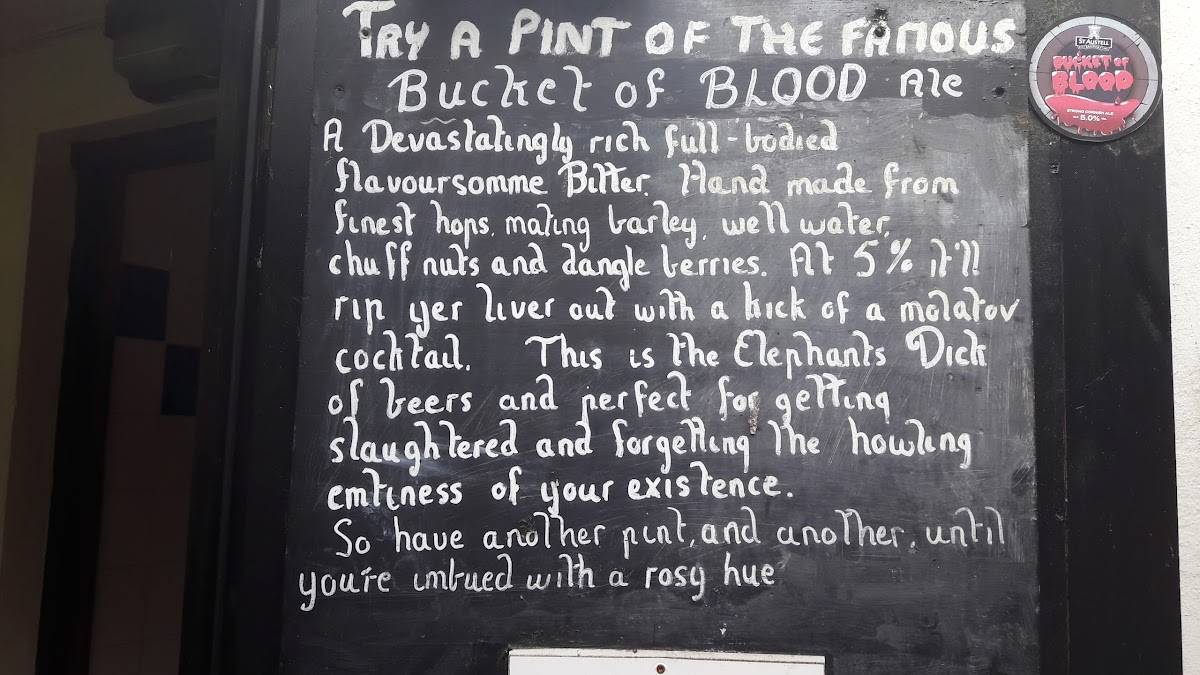 TRY A PINT OF THE FAMOUS
BUCKET OF BLOOD Ale
A Devastatingly rich full-bodied
flavoursomme Bitter. Hand made from
finest hops, malting barley, well water,
chuff nuts and dangle berries. At 5% it'll
rip yer liver out with a kick of a molatov
cocktail. This is the Elephants Dick
of beers and perfect for getting
slaughtered and forgetting the howling
emtiness of your existence.
So have another pint, and another, until
you're imbued with a rosy hue
ST AUSTELL
BUCKET OF
BLOOD
STRONG CORNISH ALE
5.0%